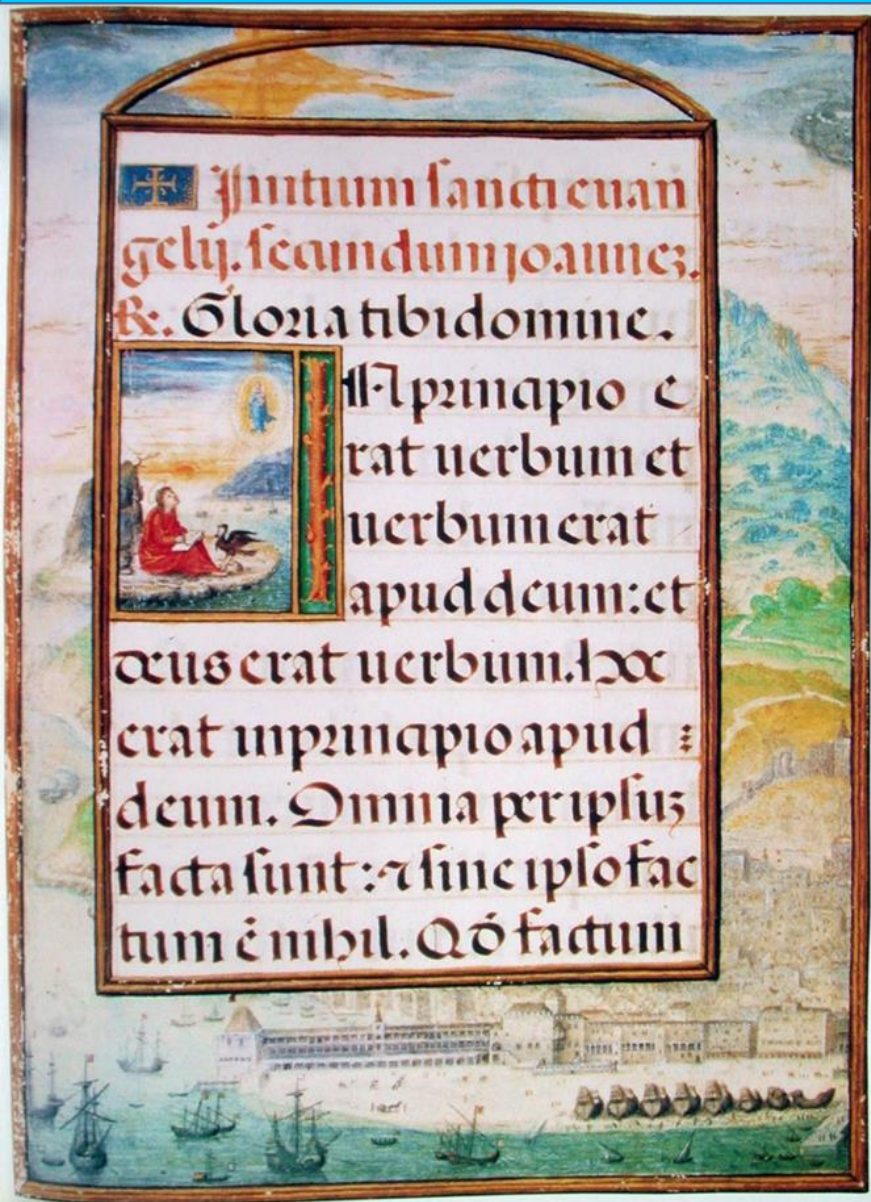 Initium sancti euan
gelij. secundum ioannez.
R. Gloria tibi domine.
IN principio e
rat uerbum et
uerbum erat
apud deum: et
deus erat uerbum. hoc
erat in principio apud :
deum. Omnia per ipsuz
facta sunt: ⁊ sine ipso fac
tum ē nihil. Qō factum